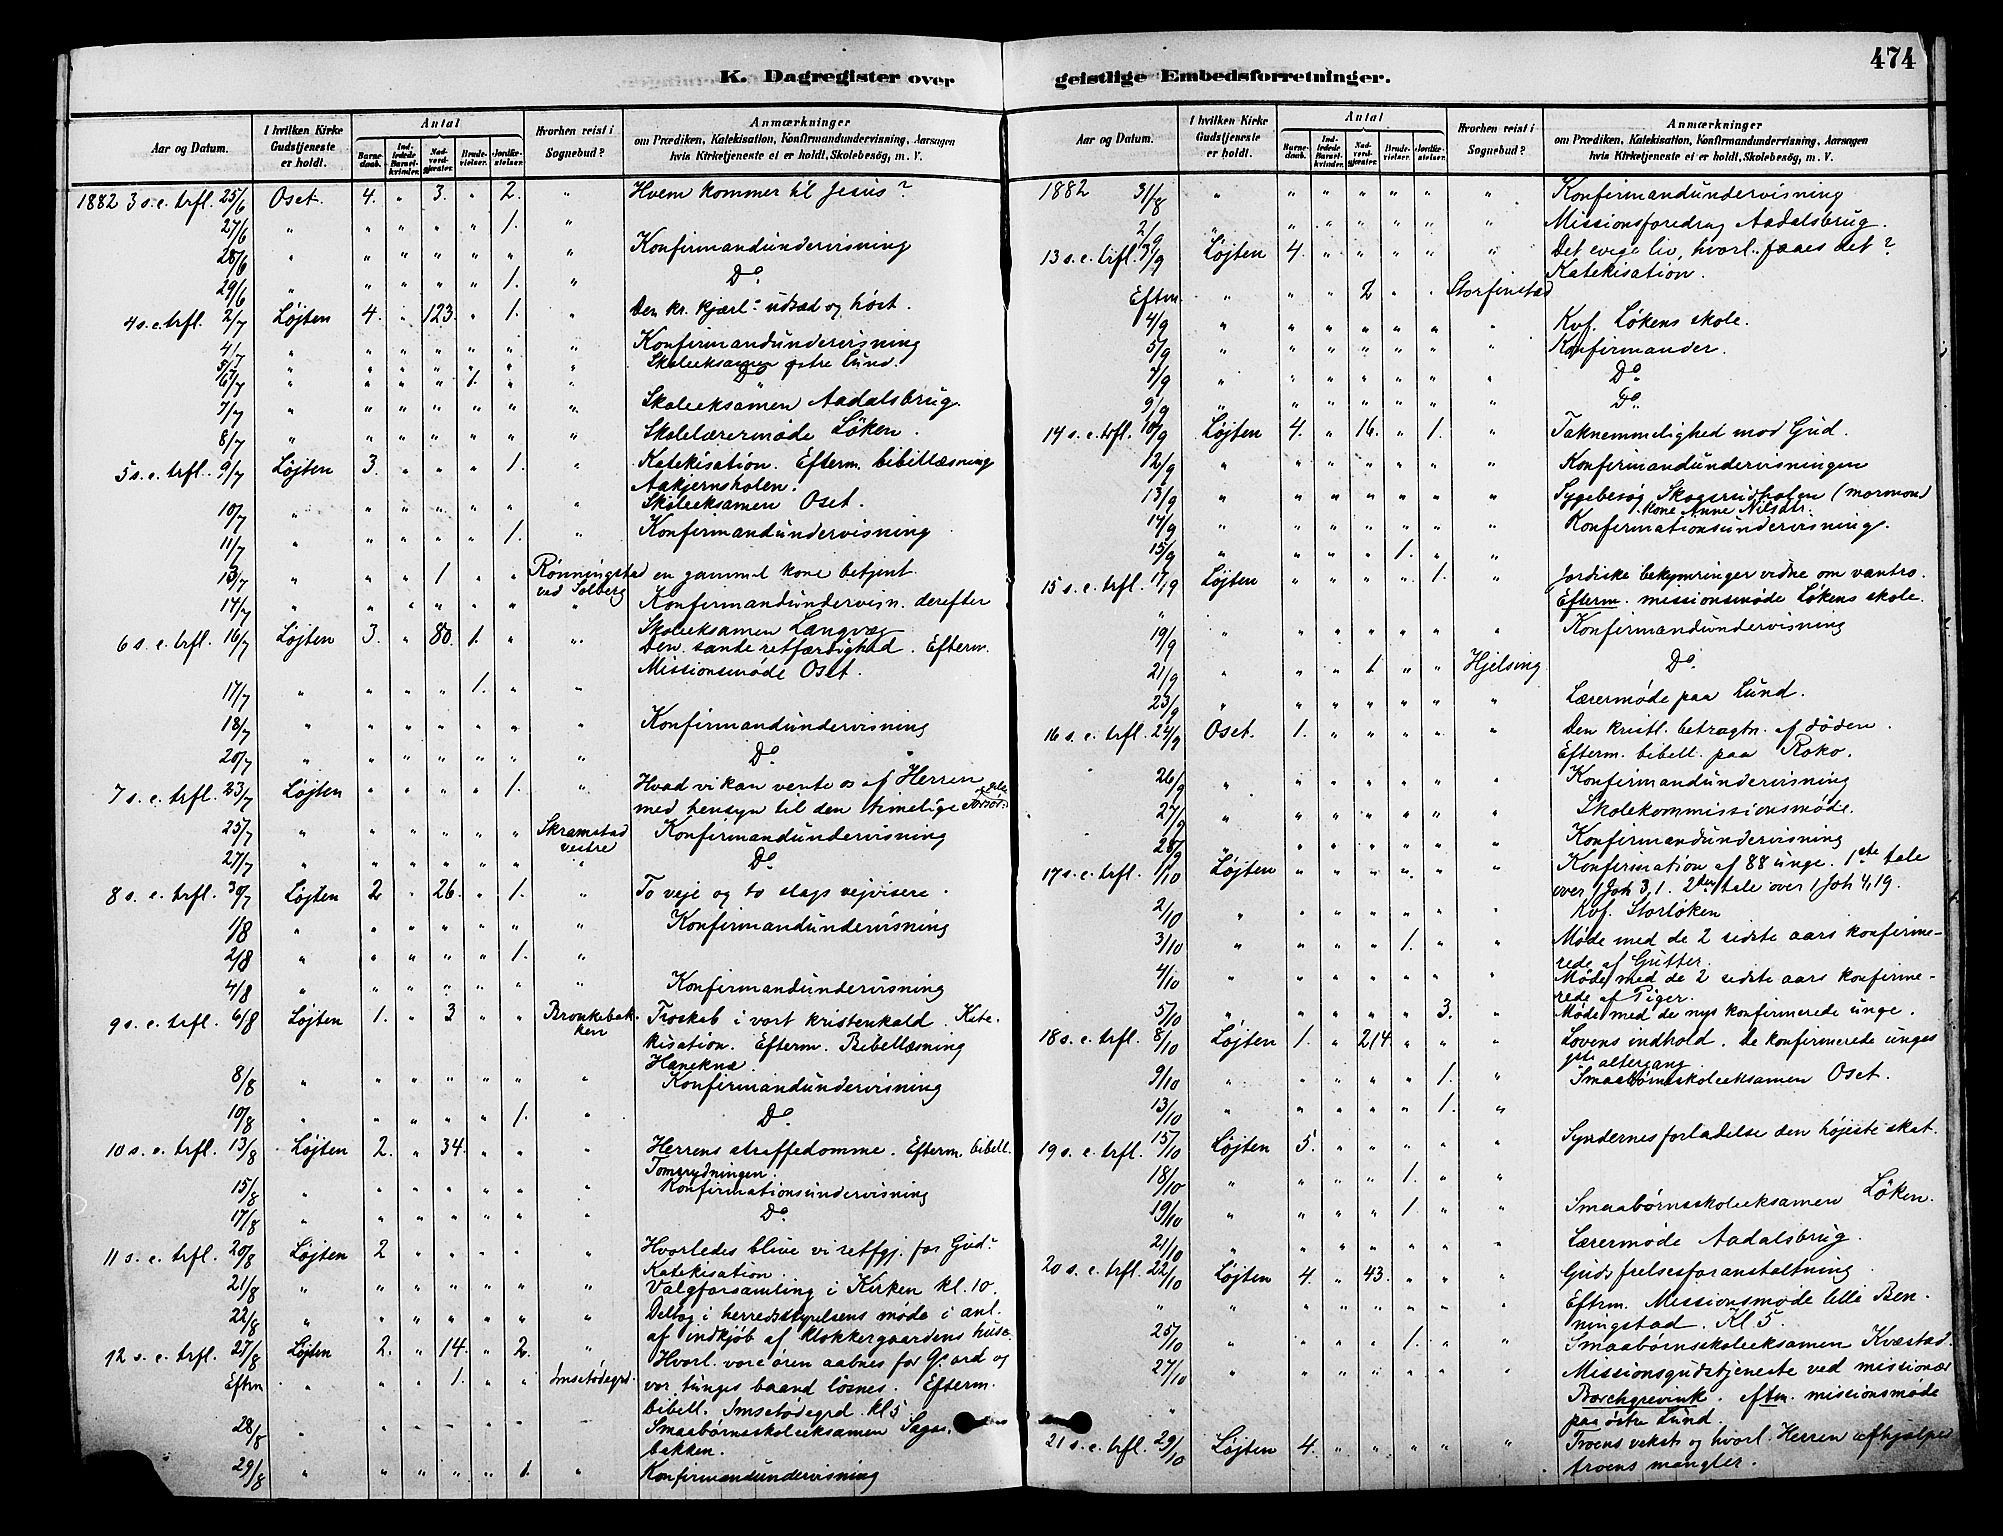 474
K. Dagregister over
Aar og Datum.
I hvilken Kirke Gudstjeneste er holdt.
Antal
Barnedaab.
Indledede Barselkvinder.
Nadvordgjester.
Brudevielser.
Jordfæstelser.
Hvorhen reist i Sognebud?
Anmærkninger
om Prædiken, Katekisation, Konfirmandundervisning, Aarsagen
hvis Kirketjeneste ei er holdt, Skolebesög, m. V.
1882 3 s. e. trfl. 25/6 Oset. 4. " 3. " 2. " Hvem kommer til Jesus?
27/6 " " " " " 1. "
28/6 " " " " " " " Konfirmandundervisning
29/6 " " " " " 1. " Do
4 s. e. trfl. 2/7 Løjten 4. " 123. " 1. " Den kr. kjærl: udsæd og høst.
4/7 " " " " " " " Konfirmandundervisning
5/7 Skoleeksamen østre Lund.
6/7 " " " " 1. " " Do
7/7 " " " " " " " Skoleeksamen Aadalsbrug.
8/7 " " " " " " " Skolelærermøde Løken.
5 s. e. trfl. 9/7 Løjten 3. " " " 1. " Katekisation. Efterm. bibellæsning
Aakjernsholen.
10/7 " " " " " " " Skoleeksamen Oset.
11/7 " " " " " 1. " Konfirmandundervisning
13/7 " " " 1 " " Rønningstad ved Solberg en gammel kone betjent.
14/7 " " " " " " " Konfirmandundervisn. derefter
Skoleeksamen Langvæg
6 s. e. trfl. 16/7 Løjten 3. " 80. 1. " " Den sande retfærdighed. Efterm.
Missionsmøde Oset.
17/7 " " " " 1. " "
18/7 " " " " " " " Konfirmandundervisning
20/7 " " " " " " " Do
7 s. e. trfl. 23/7 Løjten " " " " 1. " Hvad vi kan vente os af Herren
med hensyn til den timelige
25/7 " " " " " " Skramstad vestre Konfirmandundervisning
27/7 " " " " " " " Do
8 s. e. trfl. 30/7 Løjten 2 " 26. " 1. " To veje og to slags vejvisere.
1/8 " " " " " " " Konfirmandundervisning
2/8 " " " " " 1. "
4/8 " " " " " " " Konfirmandundervisning
9 s. e. trfl. 6/8 Løjten 1. " 3 " " Bronkebakken Troskab i vort kristenkald. Kate-
kisation. Efterm. Bibellæsning
Hanekne.
8/8 " " " " " " " Konfirmandundervisning
10/8 " " " " " 1. " Do
10 s. e. trfl. 13/8 Løjten 2. " 34. " " " Herrens straffedomme. Efterm. bibell.
Tomsrydningen.
15/8 " " " " " " " Konfirmationsundervisning
17/8 " " " " " " " Do
11 s. e. trfl. 20/8 Løjten 2 " " " " " Hvorledes blive vi retfgj. for Gud:
Katekisation.
21/8 " " " " " " " Valgforsamling i Kirken kl. 10.
22/8 " " " " " " " Deltog i herredsstyrelsens møde i anl.
af indkjøb af klokkergaardens huse.
12 s. e. trfl. 27/8 Løjten 2. " 14. " 2. " Hvorl. vore øren aabnes for G: ord og
Eftrm " " " 1. " " Imsetødegrd. vor tunges baand løsnes. Efterm.
bibell. Imsetødegrd. kl 5
28/8 " " " " " " " Smaabørnsskoleeksamen Sagas-
bakken.
29/8 " " " " " 1. " Konfirmandundervisning
geistlige Embedsforretninger.
Aar og Datum.
I hvilken Kirke Gudstjeneste er holdt.
Antal
Barnedaab.
Indledede Barselkvinder.
Nadvordgjester.
Brudevielser.
Jordfæstelser.
Hvorhen reist i Sognebud?
Anmærkninger
om Prædiken, Katekisation, Konfirmandundervisning, Aarsagen
hvis Kirketjeneste ei er holdt, Skolebesög, m. V.
1882 31/8 " " " " " " " Konfirmandundervisning
2/9 " " " " " " " Missionsforedrag Aadalsbrug.
13 s. e. trfl. 3/9 Løjten 4. " " " " " Det evige liv, hvorl. faaes det?
Katekisation.
Eftm " " " 2 " " Storfinstad
4/9 " " " " " " " Kvf. Løkens skole.
5/9 " " " " " " " Konfirmander.
7/9 " " " " " " " Do
9/9 " " " " " " " Do.
14 s. e. trfl. 10/9 Løjten 4. " 16. " 1. " Taknemmelighed mod Gud.
12/9 " " " " " " " Konfirmandundervisningen
13/9 " " " " " " " Sygebesøg Skogsrudholen (mormon)
kone Anne Nilsdtr.
14/9 " " " " " " " Konfirmationsundervisning.
15/9 " " " " 1. " "
15 s. e. trfl. 17/9 Løjten " " " " 1. " Jordiske bekymringer vidne om vantro.
" Efterm. missionsmøde Løkens skole.
19/9 " " " " " " " Konfirmandundervisning
21/9 " " " 1 " " Hjelsing Do.
23/9 " " " " " " " Lærermøde paa Lund.
16 s. e. trfl. 24/9 Oset. 1. " " " " " Den kristl. betragtn. af døden.
Efterm. bibell. paa Roko.
26/9 " " " " " " " Konfirmandundervisning
27/9 " " " " " " " Skolekommissionsmøde.
28/9 " " " " " " " Konfirmandundervisning
17 s. e. trfl. 1/10 Løjten " " " " " " Konfirmation af 88 unge. 1ste tale
over 1 Joh 3,1. 2den tale over 1 Joh 4,19.
2/10 " " " " " " " Kvf. Storløken
3/10 " " " " 1. " " Møde med de 2 sidste aars konfirme-
rede af Gutter.
4/10 " " " " " " " Møde med de 2 sidste aars konfirme-
rede af Piger.
5/10 " " " " " 3. " Møde med de nys konfirmerede unge.
18 s. e. trfl. 8/10 Løjten 1. " 214 " " " Lovens indhold. De konfirmerede unges
altergang
9/10 " " " " " 1. " Smaabørnsskoleeksamen Oset.
13/10 " " " " " 1. "
19 s. e. trfl. 15/10 Løjten 5. " " " " " Syndernes forladelse den højeste skat.
18/10 " " " " 1. " "
19/10 " " " " 1. " " Smaabørnsskoleeksamen Løken.
21/10 " " " " " " " Lærermøde Aadalsbrug.
20 s. e. trfl. 22/10 Løjten 4. " 43. " " " Guds frelsesforanstaltning
" " " " " " " " Eftrm. Missionsmøde lille Ben-
ningstad. Kl 5.
25/10 " " " " 1. " " Smaabørnsskoleeksamen Kvæstad
27/10 " " " " " " " Missionsgudstjeneste ved missionær
Borchgrevink. eftm. missionsmøde
paa østre Lund.
21 s. e. trfl. 29/10 Løjten 4. " " " " " Troens vekst og hvorl. Herren afhjælper
troens mangler.